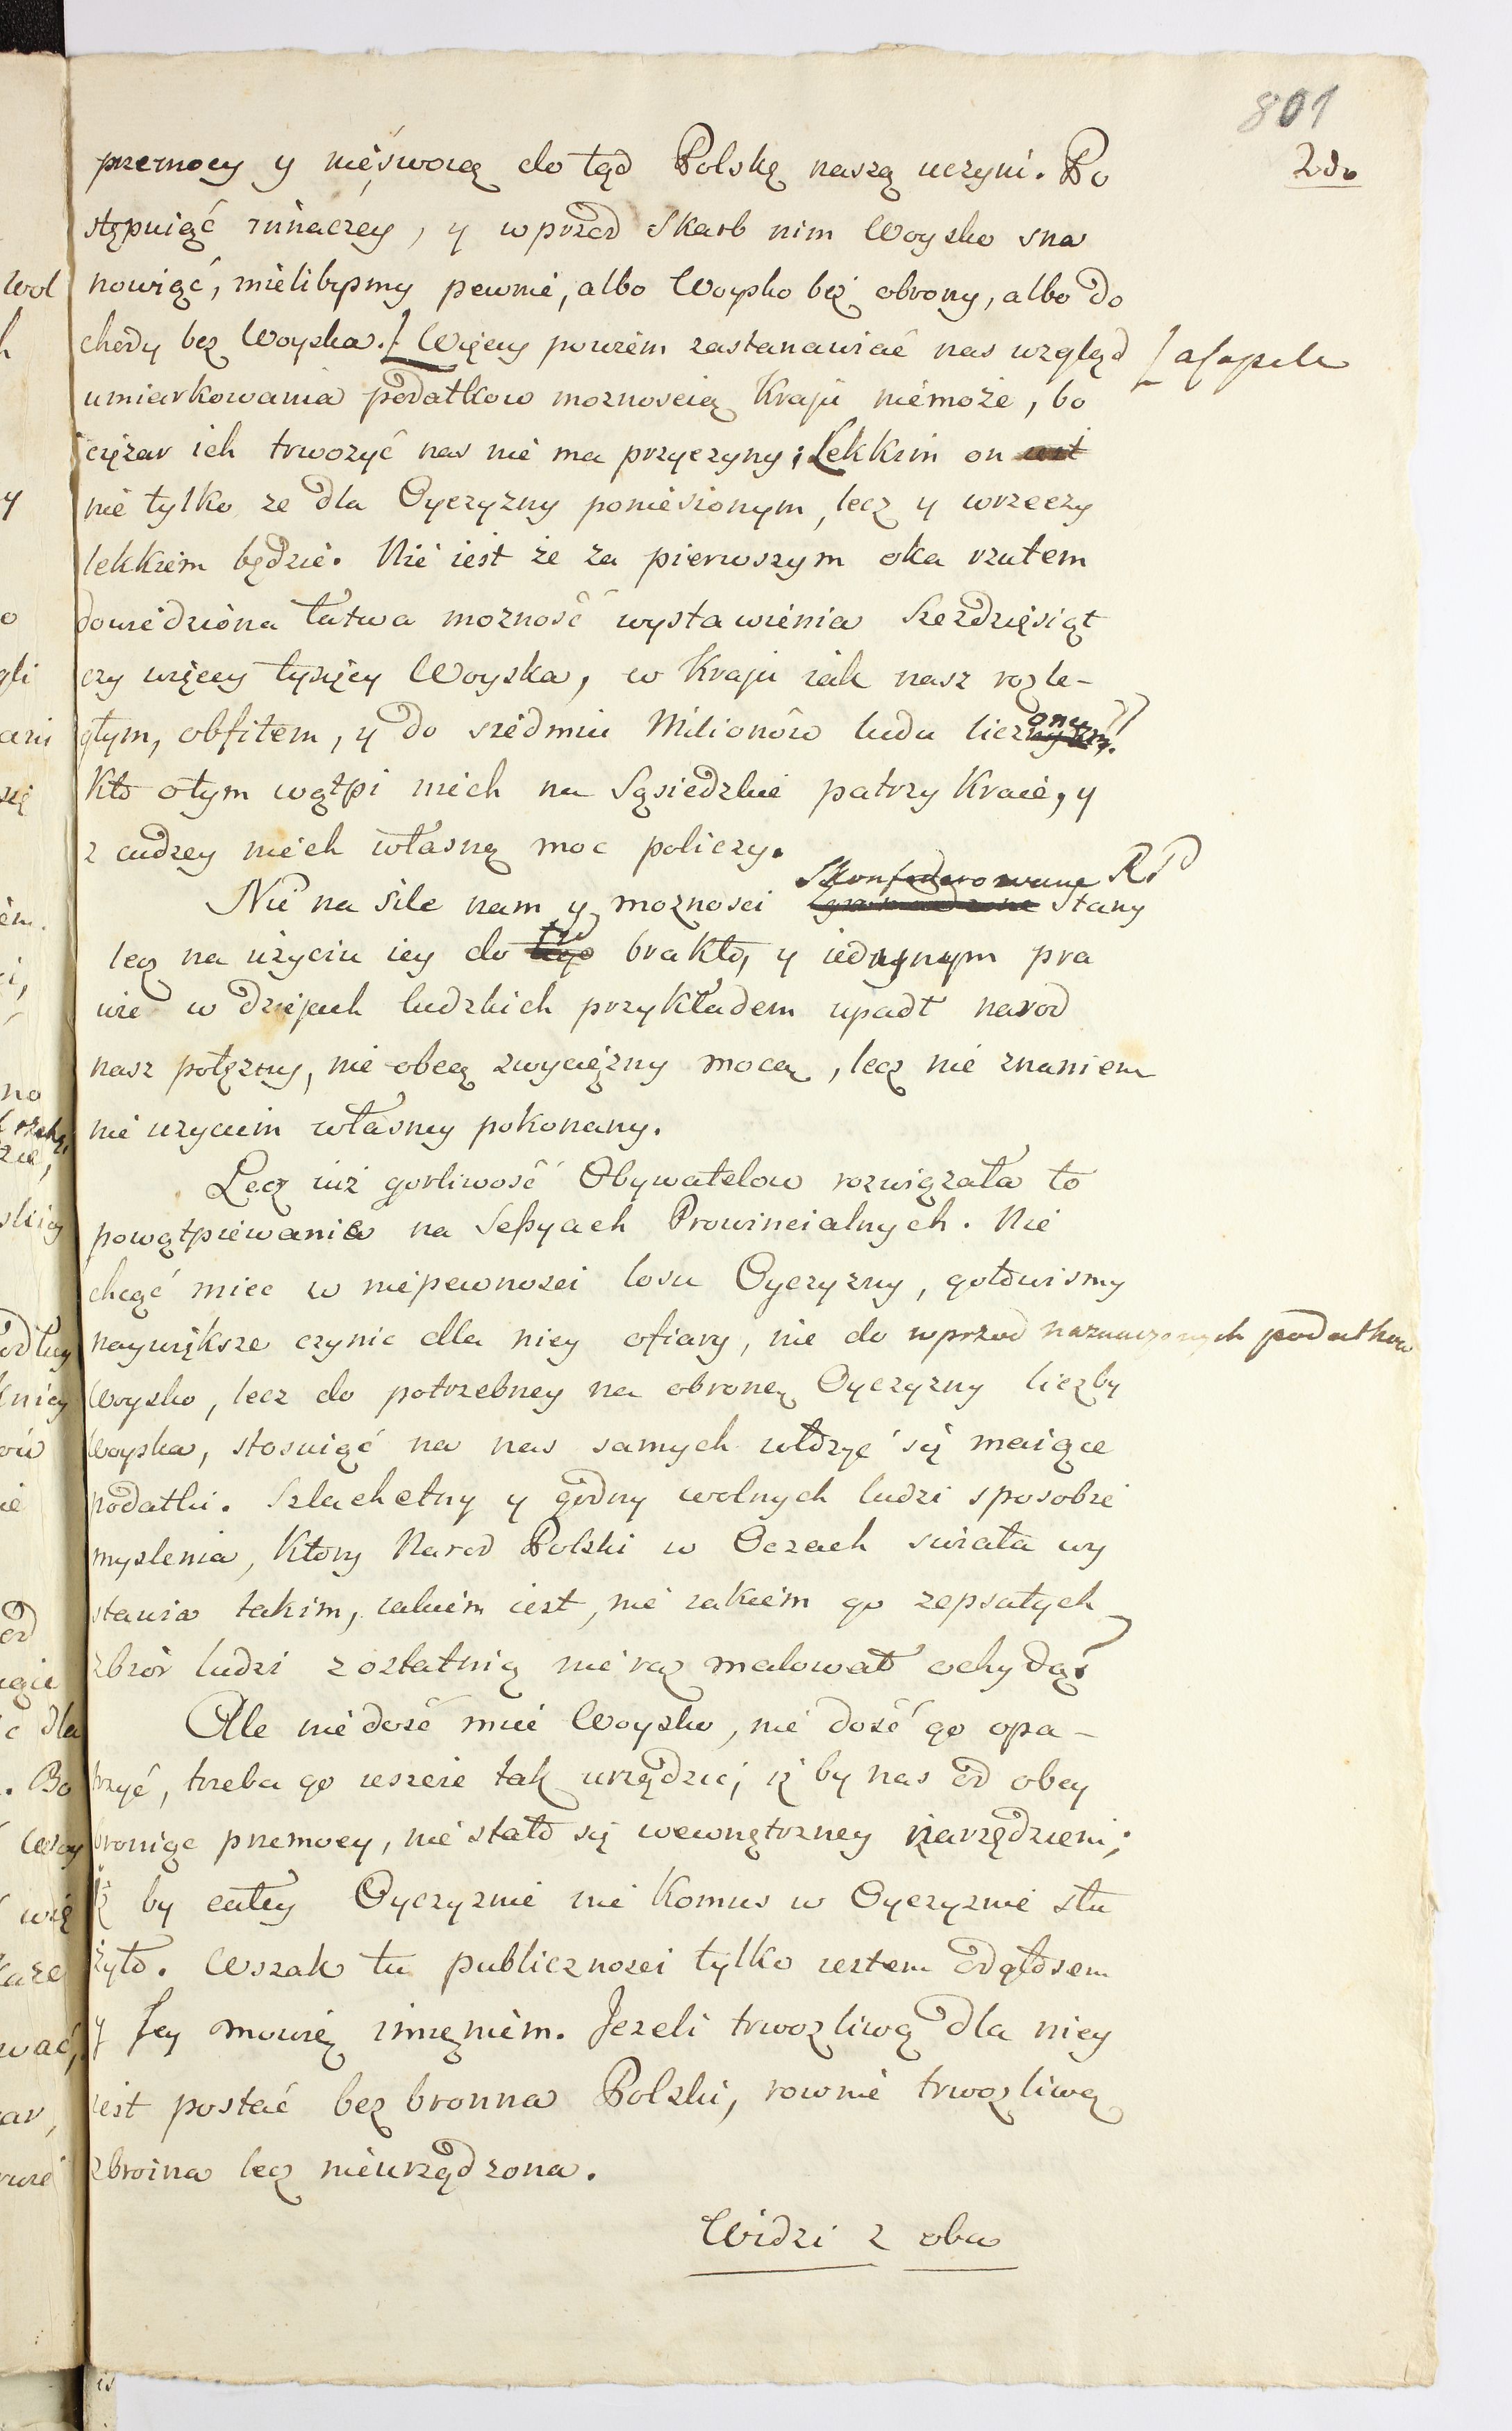 801
2do
przemocy y nieświorą do tąd Polskę naszą uczyni. Po
stępuiąć inaczey, y wprzod Skarb nim Woysko sta
nowiąć, mielibysmy pewnie, albo Woysko bez obrony, albo do
chody bez Woyska. [ Więcey powiem zastanawiać nas wzgląd [ a capite
umiarkowania podatkow moznoscią Kraju niemoże, bo
cięzar ich trwozyć nas nie ma przyczyny; Lekkim on iest
nie tylko ze dla Oyczyzny poniesionym, lecz y wrzeczy
lekkiem będzie. Nie iest że za pierwszym oka rzutem
dowiedziona łatwa moznosć wystawienia Szezdziesiąt
czy więcey tysięcy Woyska, w Kraju iak nasz rozle-
głym, obfitem, y do siedmiu Milionów ludu
Kto otym wątpi niech na Sąsiedzkie patrzy Kraie, y
z cudzey niech własną moc policzy.
Skonfederowane R.P
Nie na sile nam y moznosci Zgromadzone Stany
tąd
lecz na użyciu iey do tego brakło, y iedynym pra
wie w dziejach ludzkich przykładem upadł narod
nasz potęzny, nie obcą zwycięzny mocą, lecz nie znaniem
nie uzyciem własney pokonany.
Lecz iuż gorliwosć Obywatelow rozwiązała to
powątpiewanie na Sessyach Prowincialnych. Nie
chcąć miec w niepewnosci losu Oyczyzny, gotowismy
naywiększe czynic dla niey ofiary, nie do wprzod naznaczonych podatkow
Woysko, lecz do potrzebney na obronę Oyczyzny liczby
Woyska, stosuiąć na nas samych włozyć się maiące
podatki. Szlachetny y godny wolnych ludzi sposobie
myslenia, Ktory Narod Polski w Oczach swiata wy
stawia takim, iakiem iest, nie iakiem go zepsutych
zbior ludzi z ostatnią nie raz malował ochydą!
Ale nie dosć miec Woysko, nie dosć go opa-
trzyć, trzeba go ieszcze tak urządzić, iż by nas od obcy
broniąc przemocy, nie stało się wewnętrzney narzędziem;
iż by całey Oyczyznie nie Komus w Oyczyznie słu
żyło. Wszak tu publicznosci tylko iestem odgłosem
y Jey mowię imieniem. Jezeli trwozliwą dla niey
iest postać bez bronna Polski, rownie trwozliwą
zbroina lecz nieurządzona.
Widzi z obu